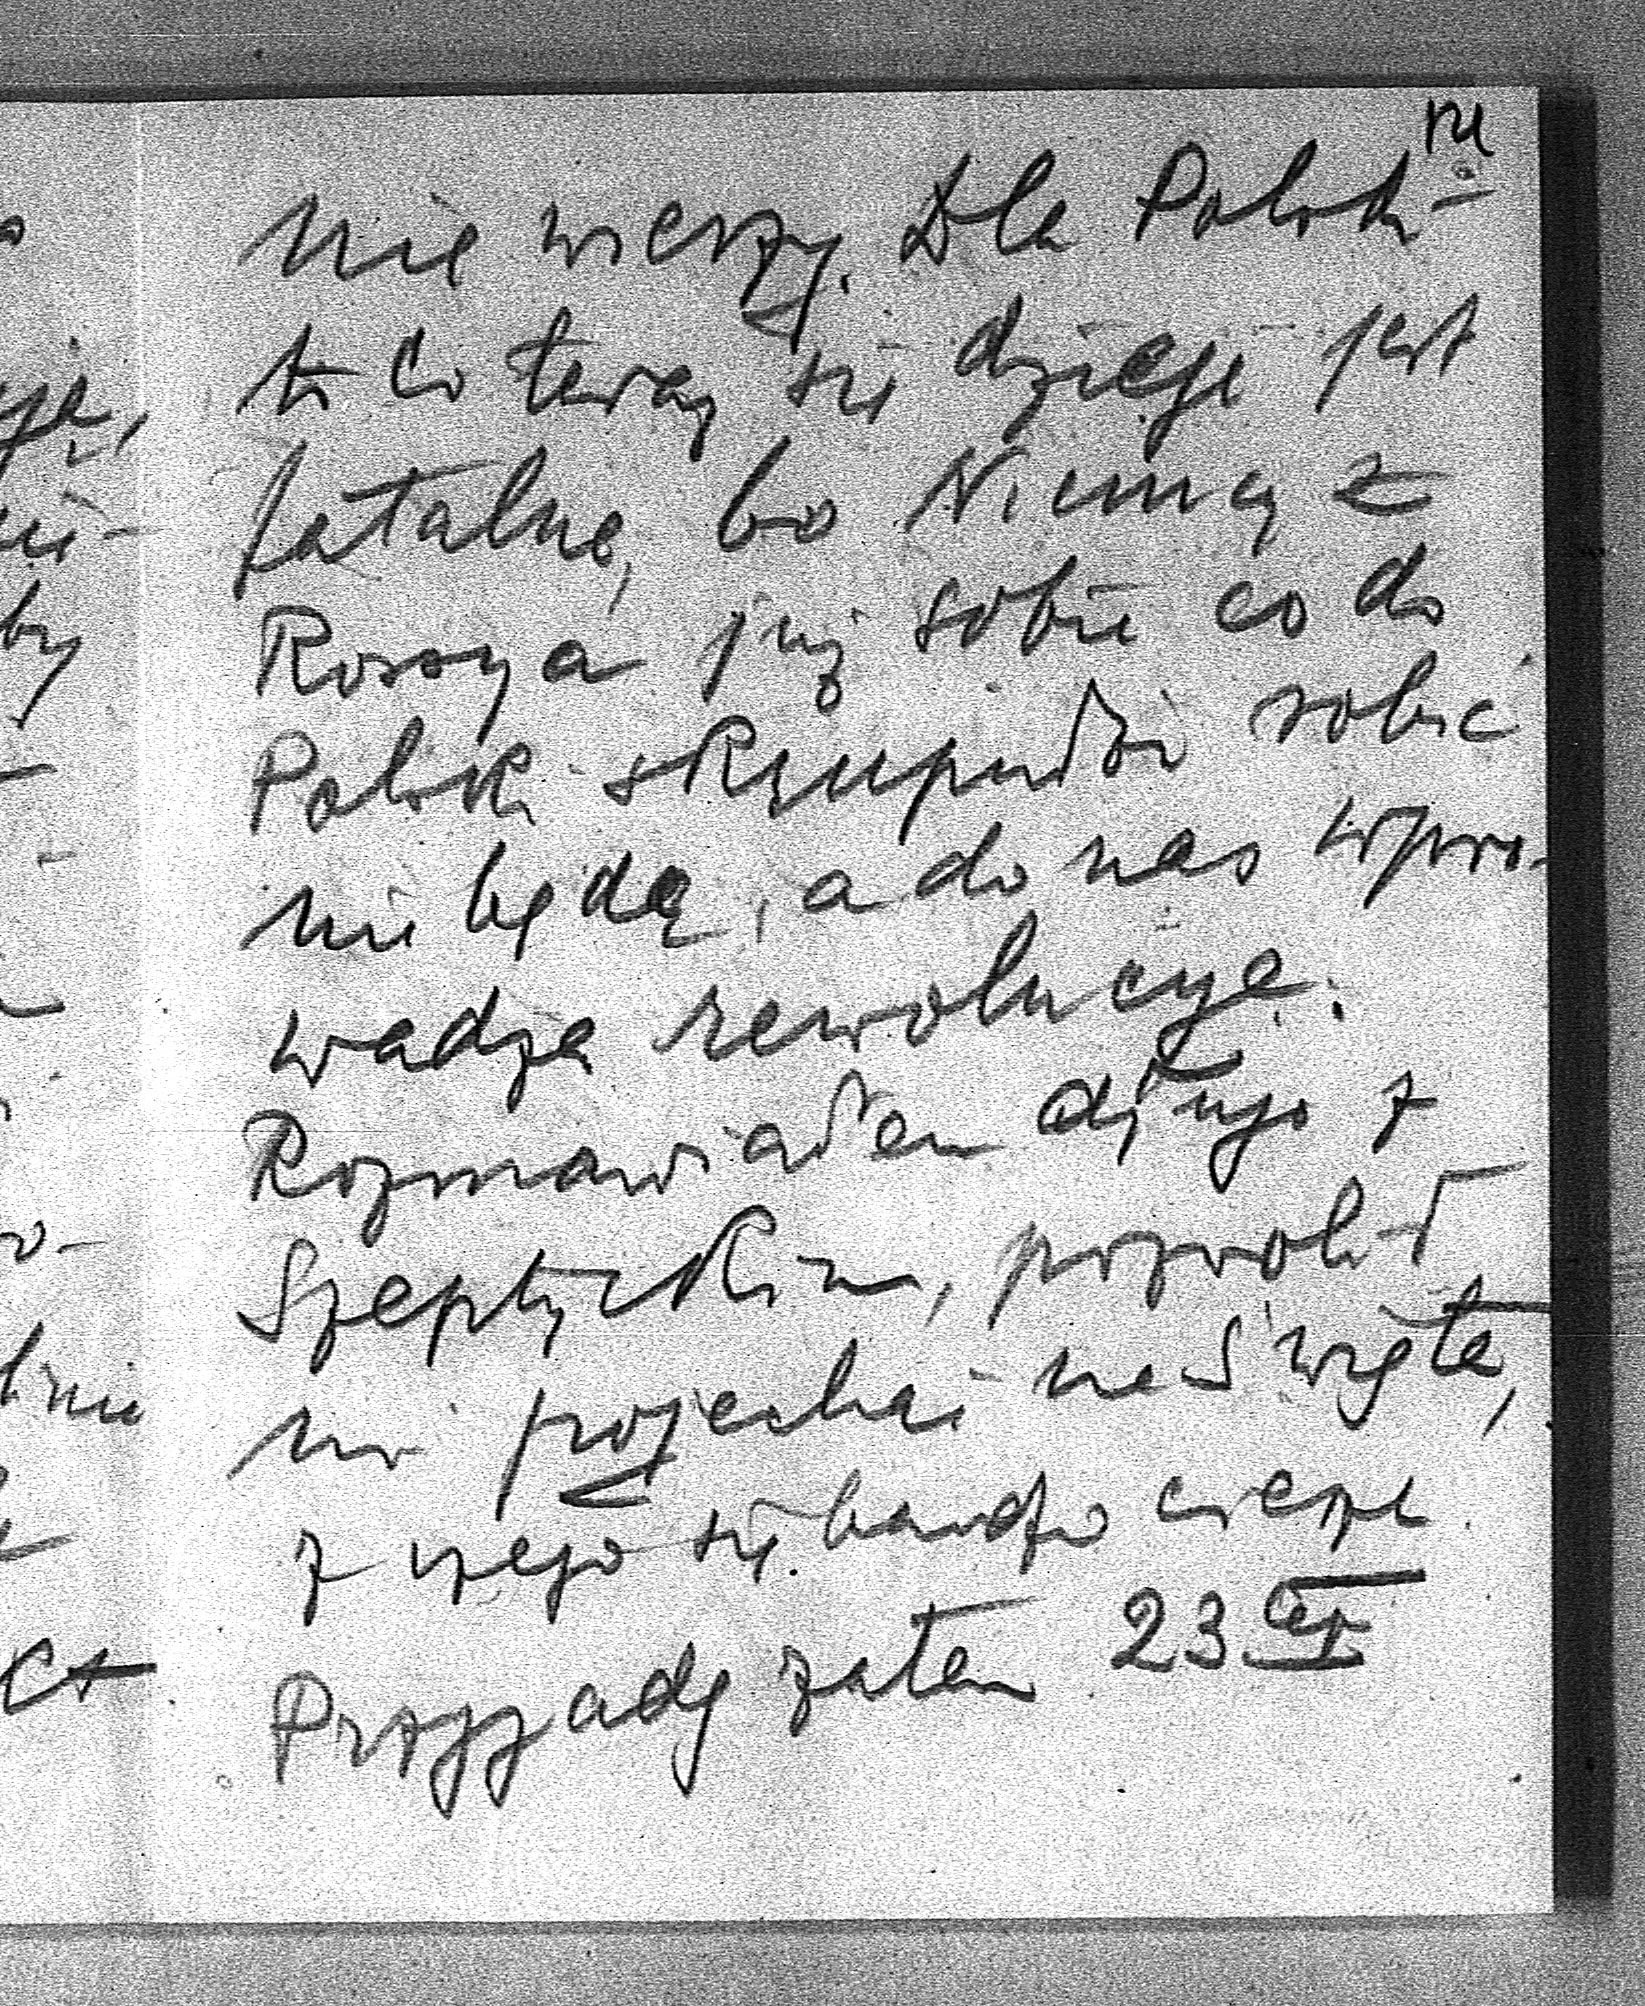 nie wierzy. Dla Polski
to co teraz się dzieje jest
fatalne, bo Niemcy z
Rosyą już sobie co do
Polski skrupułów robić
nie będą, a do nas wpro-
wadzą rewolucyę.
Rozmawiałem długo z
Szeptyckim, pozwolił
mi pojechać na Święta,
z czego się bardzo cieszę.
Przyjadę zatem 23